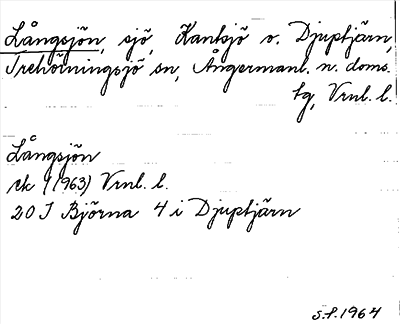 Långsjön, sjö, Kantsjö o. Djuptjärn,
Trehörningsjö sn, Ångermanl. n. doms.
tg, Vrnl. l.
Långsjön
ek 1 (1963) Vrnl. l.
20 I Björna 4 i Djuptjärn
S.f. 1964